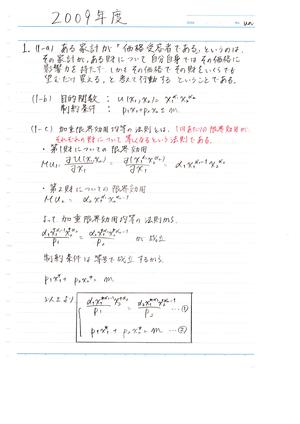 2009年度
1. (1-a) ある家計が「価格受容者である」というのは、
その家計が、ある財について自分自身ではその価格に
影響力を持たず、しかもその価格でその財をいくらでも
望むだけ買える、と考えて行動する ということである。
(1-b) 目的関数 : u(x₁,x₂) = x₁^α₁ x₂^α₂
制約条件 : p₁x₁+p₂x₂ ≤ m
(1-c) 加重限界効用均等の法則とは、1円あたりの限界効用が、
それぞれの財について等しくなるという法則である。
・第1財についての限界効用
MU₁ = ∂U(x₁,x₂)/∂x₁ = ∂(x₁^α₁ x₂^α₂)/∂x₁ = α₁x₁^(α₁-1) x₂^α₂
・第2財についての限界効用
MU₂ = α₂ x₁^α₁ x₂^(α₂-1)
よって 加重限界効用均等の法則から、
α₁x₁^(α₁-1) x₂^α₂ / p₁ = α₂x₁^α₁ x₂^(α₂-1) / p₂ が成立
制約条件は等号で成立するから、
p₁x₁* + p₂x₂* = m
以上より
α₁x₁*^(α₁-1) x₂*^α₂ / p₁ = α₂x₁*^α₁ x₂*^(α₂-1) / p₂ …①
p₁x₁* + p₂x₂* = m …②